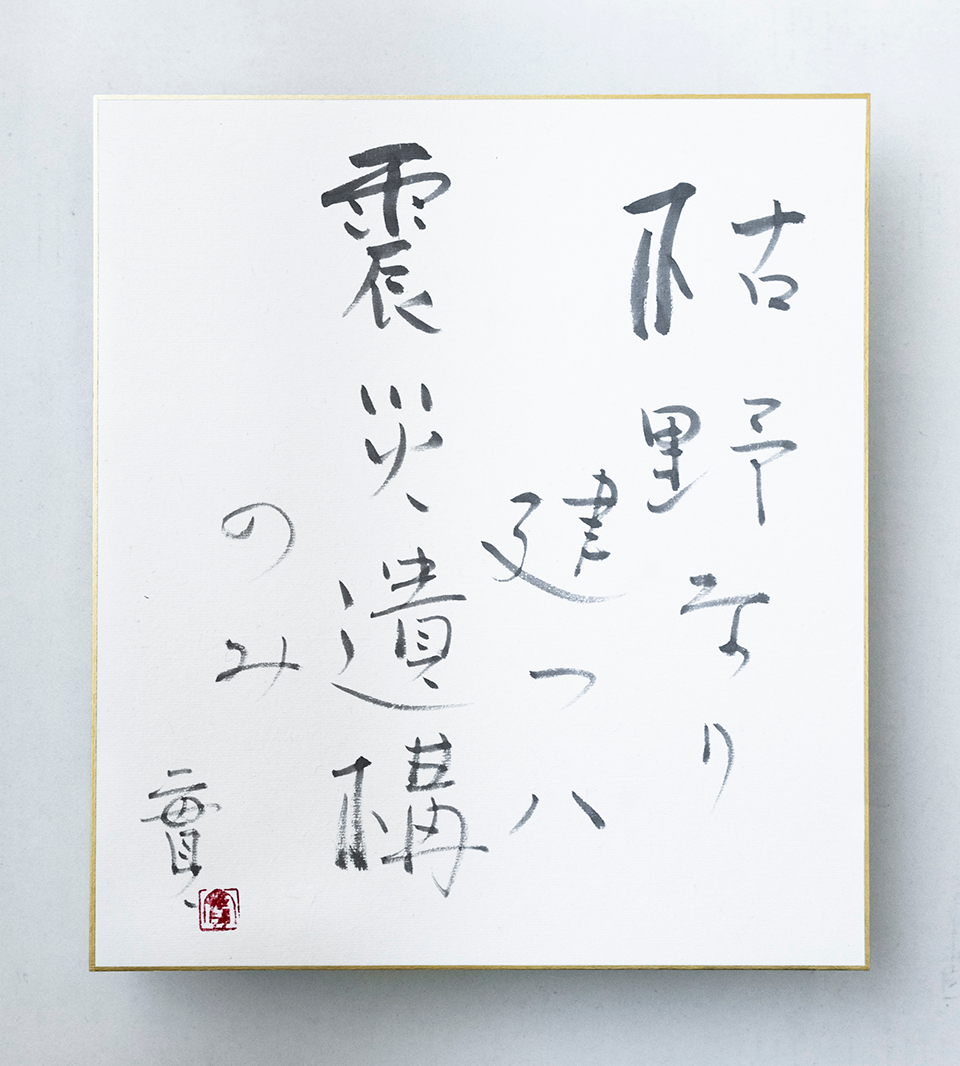 枯野なり
建つハ
震災遺構
のみ
實